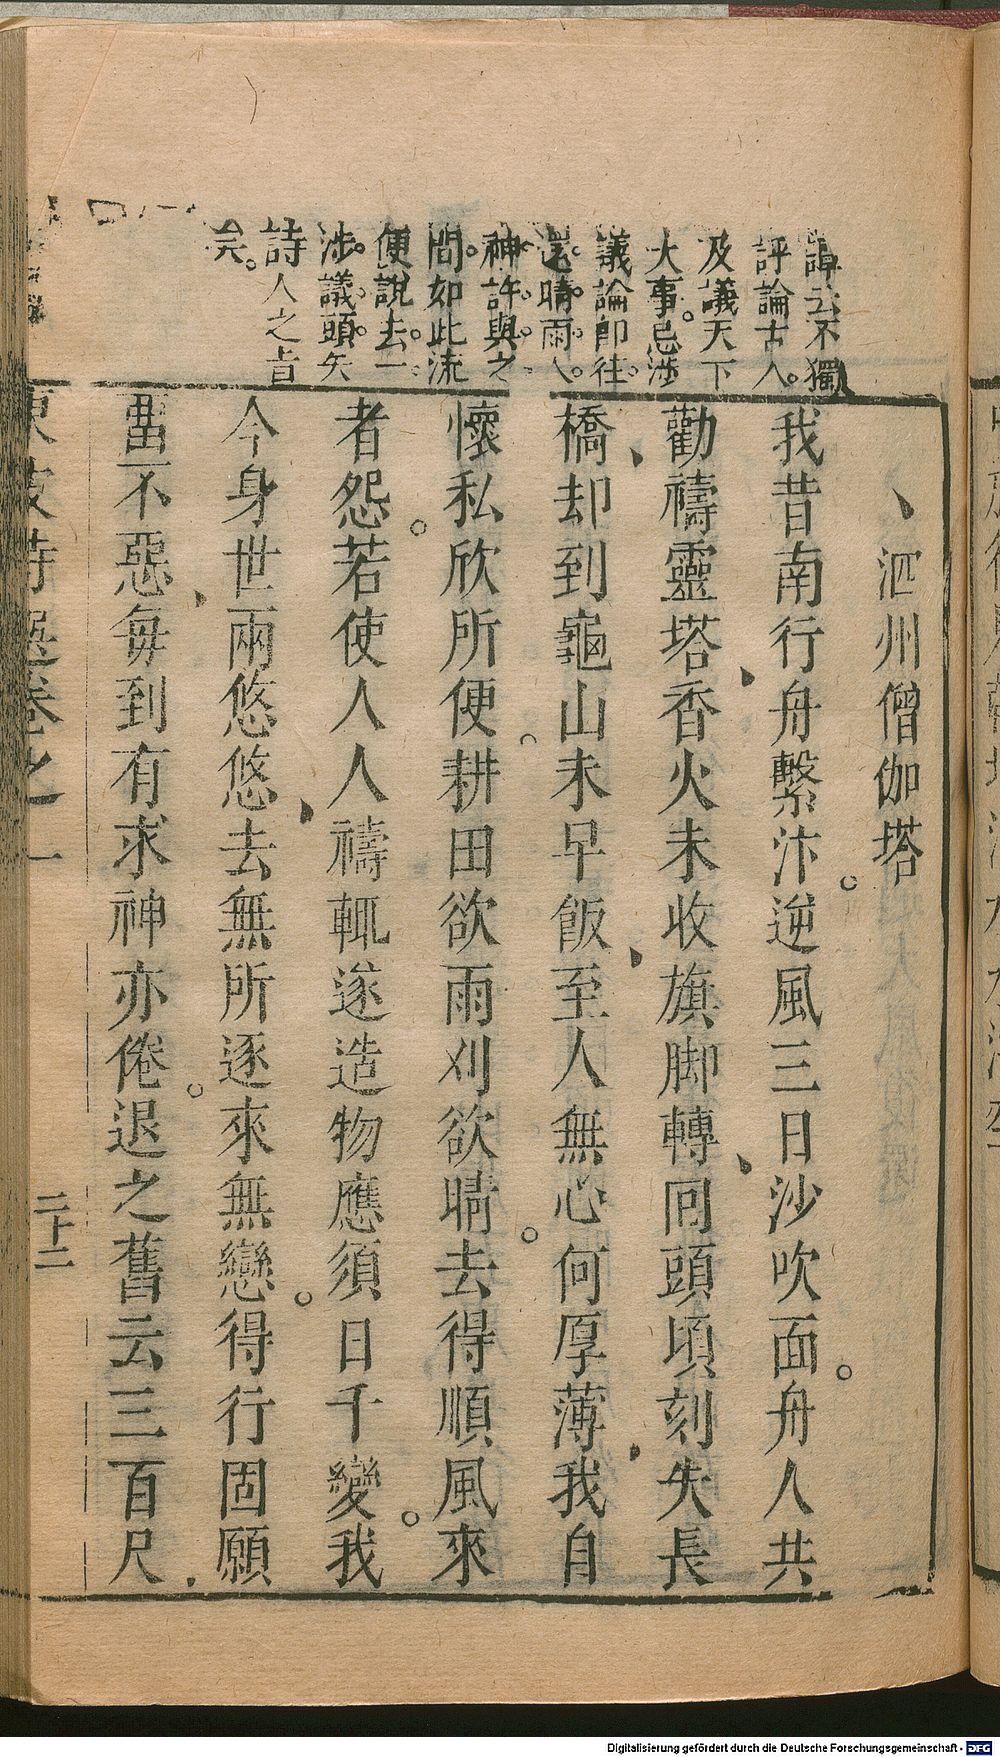 譚云不獨
評論古人。
及議天下
大事。忌涉
議論卽往。
還。晴。雨。人
神。許。與。之
間。如此流
便。說。去。一。
涉。議。頭。矢
詩人之旨
矣。
泗州僧伽塔
我昔南行舟繫汴。逆風三日沙吹面。舟人共
勸禱靈塔、香火未收旗脚轉、囘頭頃刻失長
橋、却到龜山未早飯、至人無心何厚薄、我自
懷私欣所便。耕田欲雨刈欲晴。去得順風來
者怨。若使人人禱輒遂造物應須日千變。我
今身世兩悠悠、去無所逐來無戀。得行固願
畱不惡、每到有求神亦倦。退之舊云三百尺、
東坡詩選卷之一
二十二
Digitalisierung gefördert durch die Deutsche Forschungsgemeinschaft - DFG